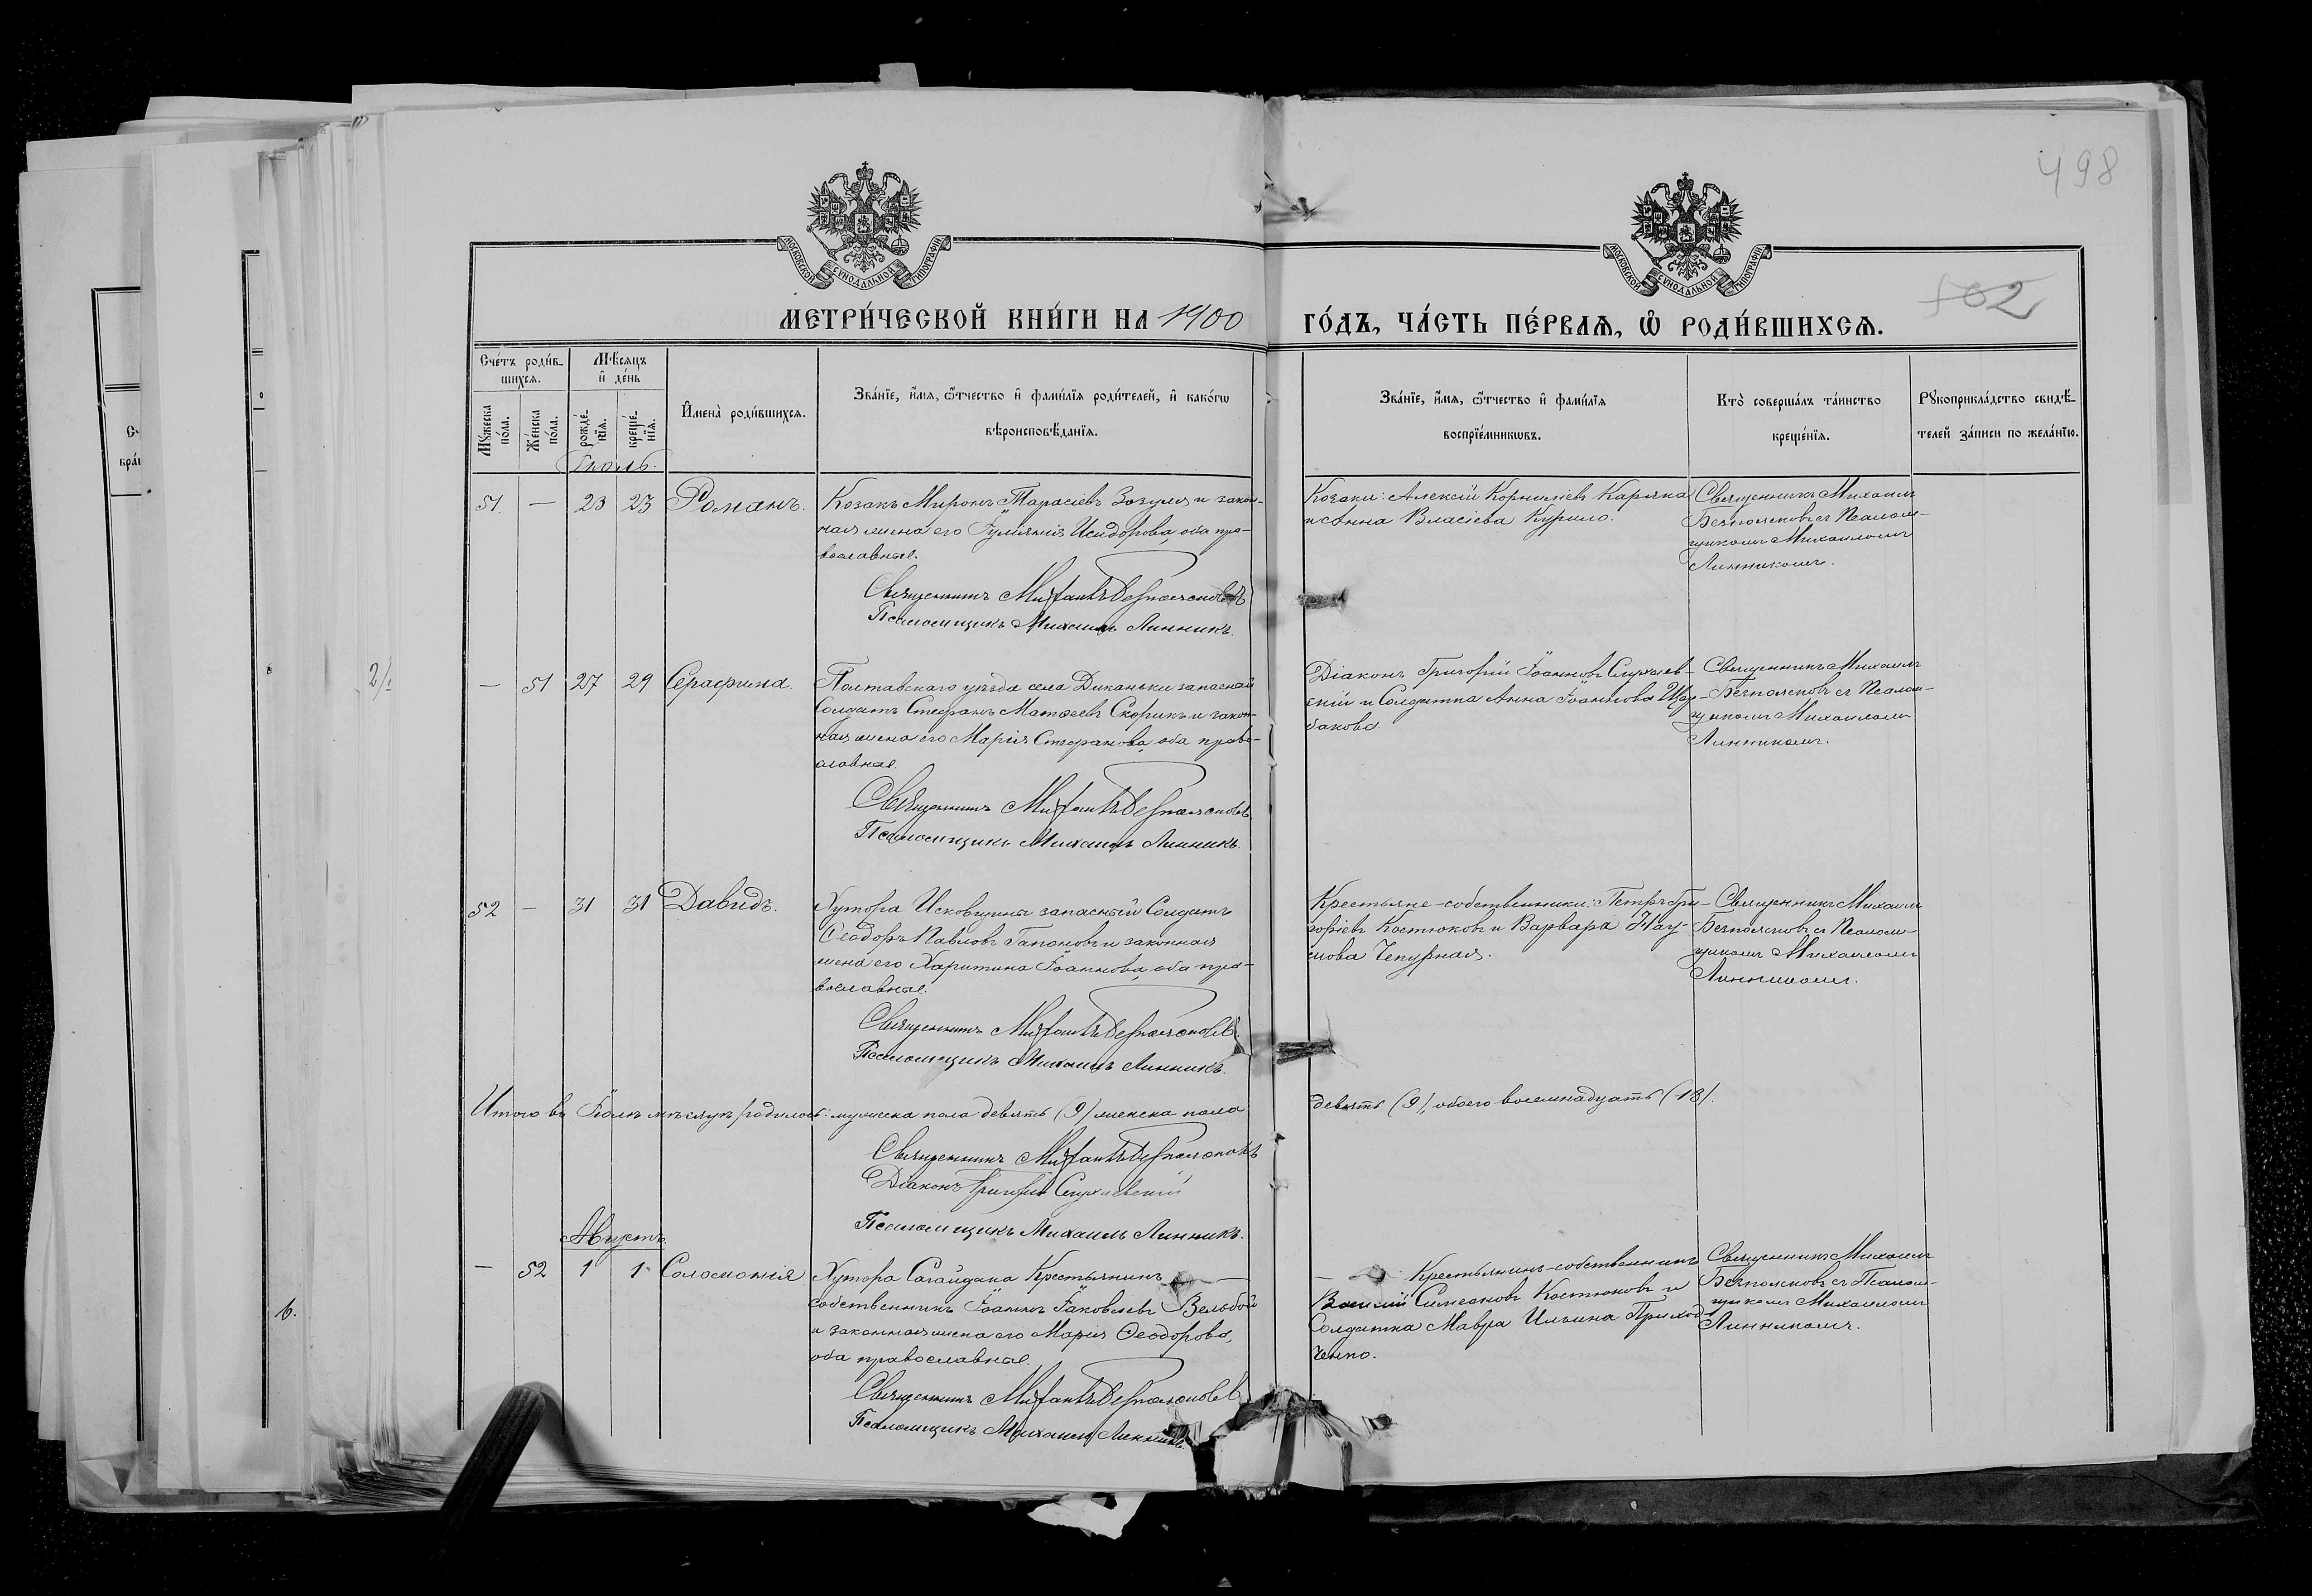 498
МОСКОВСКОЙ СѴНОДАЛЬНОЙ ТИПОГРАФІИ
МОСКОВСКОЙ СѴНОДАЛЬНОЙ ТИПОГРАФІИ
502
МЕТРИ́ЧЕСКОЙ КНИ́ГИ НА 1900 ГО́ДЪ, ЧА́СТЬ ПЕ́РВАѦ, Ѡ҆ РОДИ́ВШИХСѦ.
Сче́тъ роди́в-
шихсѧ.
Мꙋ́жеска по́ла.
Же́нска по́ла.
Мѣ́сѧцъ и҆ де́нь
рожде́-нїѧ.
креще́-нїѧ.
И҆мена̀ роди́вшихсѧ.
Зва́нїе, и҆́мѧ, ѻ҆́тчество и҆ фами́лїѧ роди́телей, и҆ како́гѡ
вѣроисповѣ́данїѧ.
Зва́нїе, и҆́мѧ, ѻ҆́тчество и҆ фами́лїѧ
воспрїе́мникѡвъ.
Кто̀ соверша́лъ та́инство
креще́нїѧ.
Рꙋкоприкла́дство свидѣ́-
телей за́писи по жела́нїю.
Іюль.
51. — 23 23 Романъ.
Козакъ Миронъ Тарасіевъ Зозуля и закон-
ная жена его Іуліанія Исидорова, оба пра-
вославные.
Священникъ Михаилъ Безпоясковъ
Псаломщикъ Михаилъ Линникъ.
Козаки: Алексій Корниліевъ Каряка
и Анна Власіева Курило.
Священникъ Михаилъ
Безпоясковъ съ Псалом-
щикомъ Михаиломъ
Линникомъ.
— 51 27 29 Серафима.
Полтавскаго уѣзда села Диканьки запасной
Солдатъ Стефанъ Матѳеевъ Скорикъ и закон-
ная жена его Марія Стефанова, оба право-
славные.
Священникъ Михаилъ Безпоясковъ
Псаломщикъ Михаилъ Линникъ.
Діаконъ Григорій Іоанновъ Слухаев-
скій и Солдатка Анна Іоаннова Щер-
бакова.
Священникъ Михаилъ
Безпоясковъ съ Псалом-
щикомъ Михаиломъ
Линникомъ.
52 — 31 31 Давидъ.
Хутора Исковщины запасный Солдатъ
Ѳеодоръ Павловъ Гапоновъ и законная
жена его Харитина Іоаннова, оба пра-
вославные.
Священникъ Михаилъ Безпоясковъ
Псаломщикъ Михаилъ Линникъ.
Крестьяне-собственники: Петръ Гри-
горіевъ Костюковъ и Варвара Нау-
мова Чепурная.
Священникъ Михаилъ
Безпоясковъ съ Псалом-
щикомъ Михаиломъ
Линникомъ.
Итого въ Іюлѣ мѣсяцѣ родилось: мужеска пола девять (9) женска пола девять (9), обоего восемнадцать (18).
Священникъ Михаилъ Безпоясковъ
Діаконъ Григорій Слухаевскій
Псаломщикъ Михаилъ Линникъ.
Августъ.
— 52 1 1 Соломонія
Хутора Сагайдака Крестьянинъ
собственникъ Іоаннъ Іаковлевъ Вельбой
и законная жена его Марія Ѳеодорова,
оба православные.
Священникъ Михаилъ Безпоясковъ
Псаломщикъ Михаилъ Линникъ.
Крестьянинъ-собственникъ
Василій Симеоновъ Костюковъ и
Солдатка Мавра Ильина Приход-
ченко.
Священникъ Михаилъ
Безпоясковъ съ Псалом-
щикомъ Михаиломъ
Линникомъ.